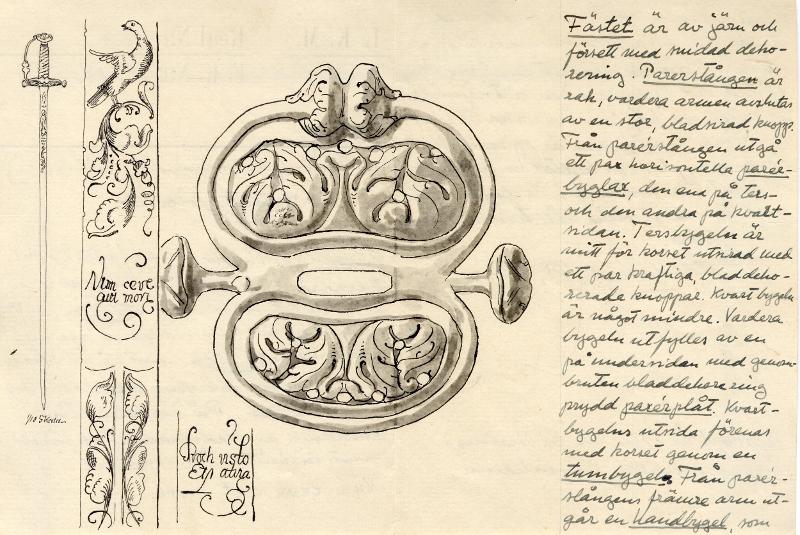 Num ceve
quti mon
Stoch visto
Ets atira
Fästet är av järn och
försett med smidad deko-
rering. Parerstången är
rak, vardera armen avslutas
av en stor, bladsirad knopp.
Från parérstången utgå
ett par horisontella parér-
byglar, den ena på ters-
och den andra på kvart-
sidan. Tersbygeln är
mitt för korset utsirad med
ett par kraftiga, bladdeko-
rerade knoppar. Kvartbygeln
är något mindre. Vardera
bygeln utfylles av en
på undersidan med genom-
bruten bladdekorering
prydd parérplåt. Kvart-
bygelns utsida förenas
med korset genom en
tumbygel. Från parér-
stångens främre arm ut-
går en handbygel, som